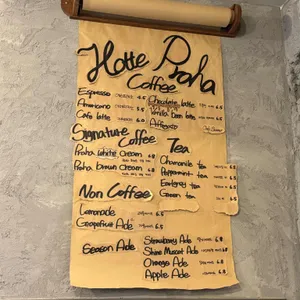 Hotte Praha
Coffee
Espresso 4.5
Americano
Cafe latte 5.0
Chocolate latte
Vanilla Bean latte
Affogato
Signature
Coffee
Praha White Cream 6.8
Praha Brown Cream 6.8
Tea
Chamomile tea 6.5
Peppermint tea 6.5
Earlgrey tea 6.5
Green tea 6.5
Non Coffee
Lemonade 6.5
Grapefruit Ade 6.5
Season Ade
Strawberry Ade 6.8
Shine Muscat Ade 6.8
Orange Ade 6.8
Apple Ade 6.8